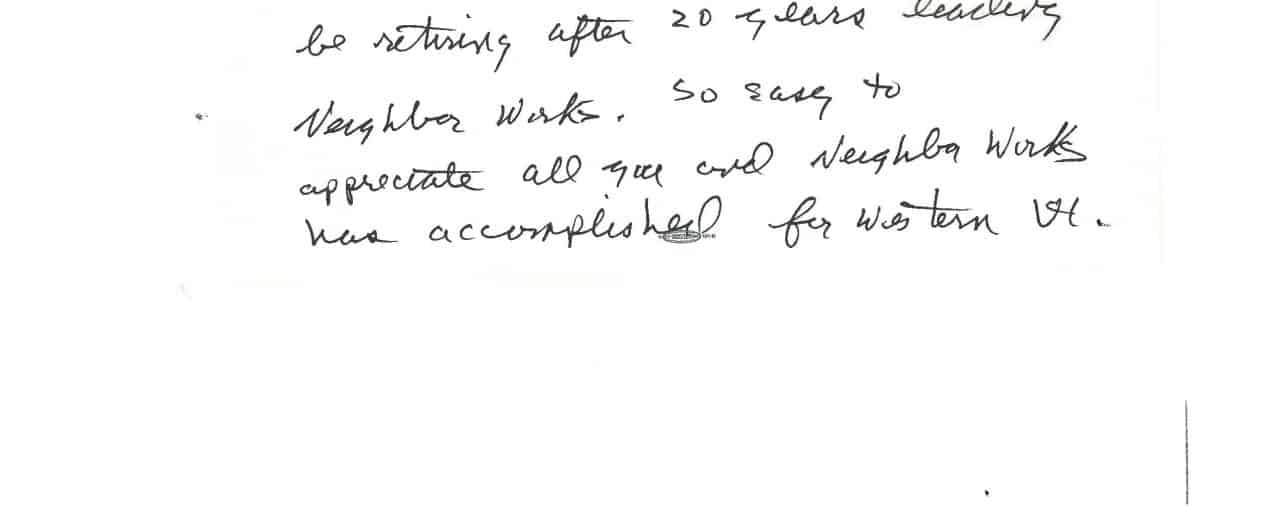 be retiring after 20 years leading
Neighbor Works. So easy to
appreciate all you and Neighbor Works
has accomplished for Western Vt.